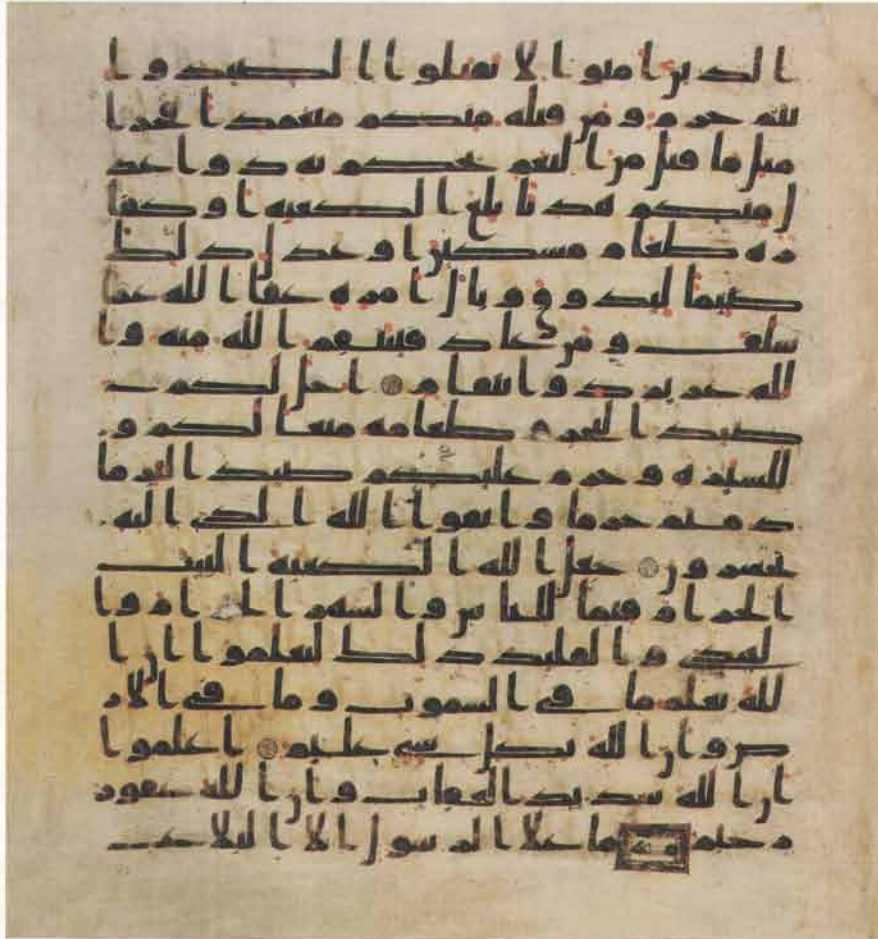 ا الذين امنوا لا تقتلوا ا الصيد وا
نتم حرم ومن قتله منكم متعمدا فجزا
مثل ما قتل من النعم يحكم به ذوا عد
ل منكم هديا بلغ الكعبه او كفا
ره طعام مسكين او عدل ذلك
صيما ليذوق وبال امره عفا الله عما
سلف ومن عاد فينتقم الله منه وا
لله عزيز ذو انتقام احل لكم
صيد البحر و طعامه متعا لكم و
للسيره وحرم عليكم صيد البر ما
دمتم حرما واتقوا الله الذي اليه
تحشرون جعل الله الكعبه البيت
الحرام قيما للناس والشهر الحرام وا
لهدي والقلئد ذلك لتعلموا ان ا
لله يعلم ما في السموت وما في الار
ض وان الله بكل شي عليم اعلموا
ان الله شديد العقاب وان الله غفور
رحيم ما علا الرسول الا البلاغ